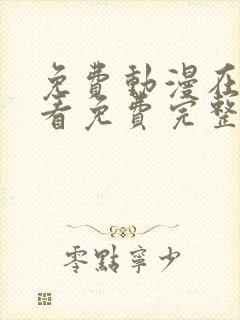 免費動漫在
看免費完整
零點寧少